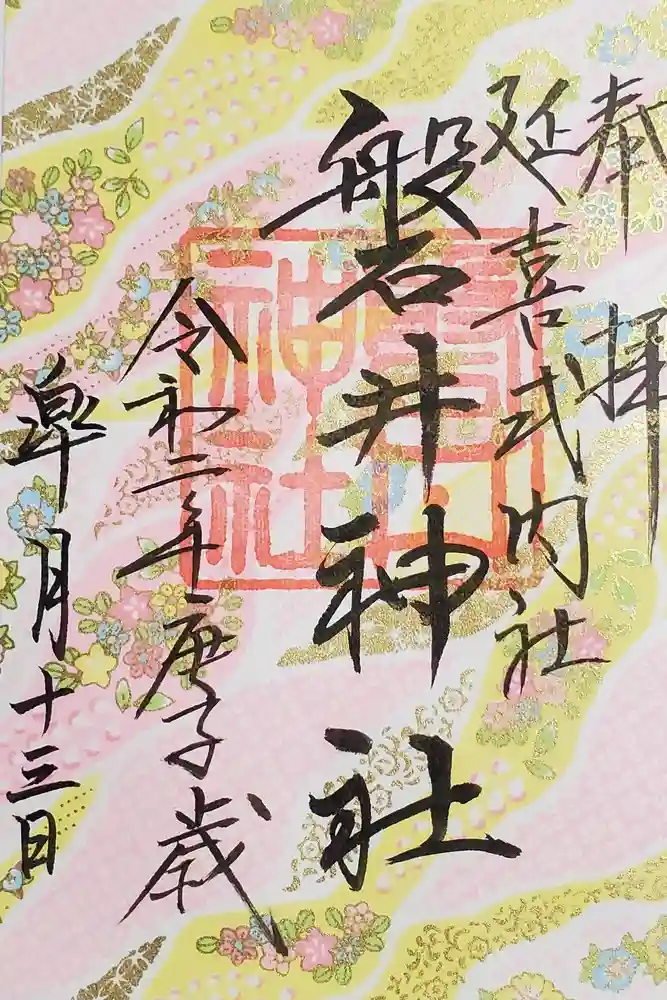 奉拝
延喜式内社
磐井神社
令和二年庚子歳
皐月十三日
神社